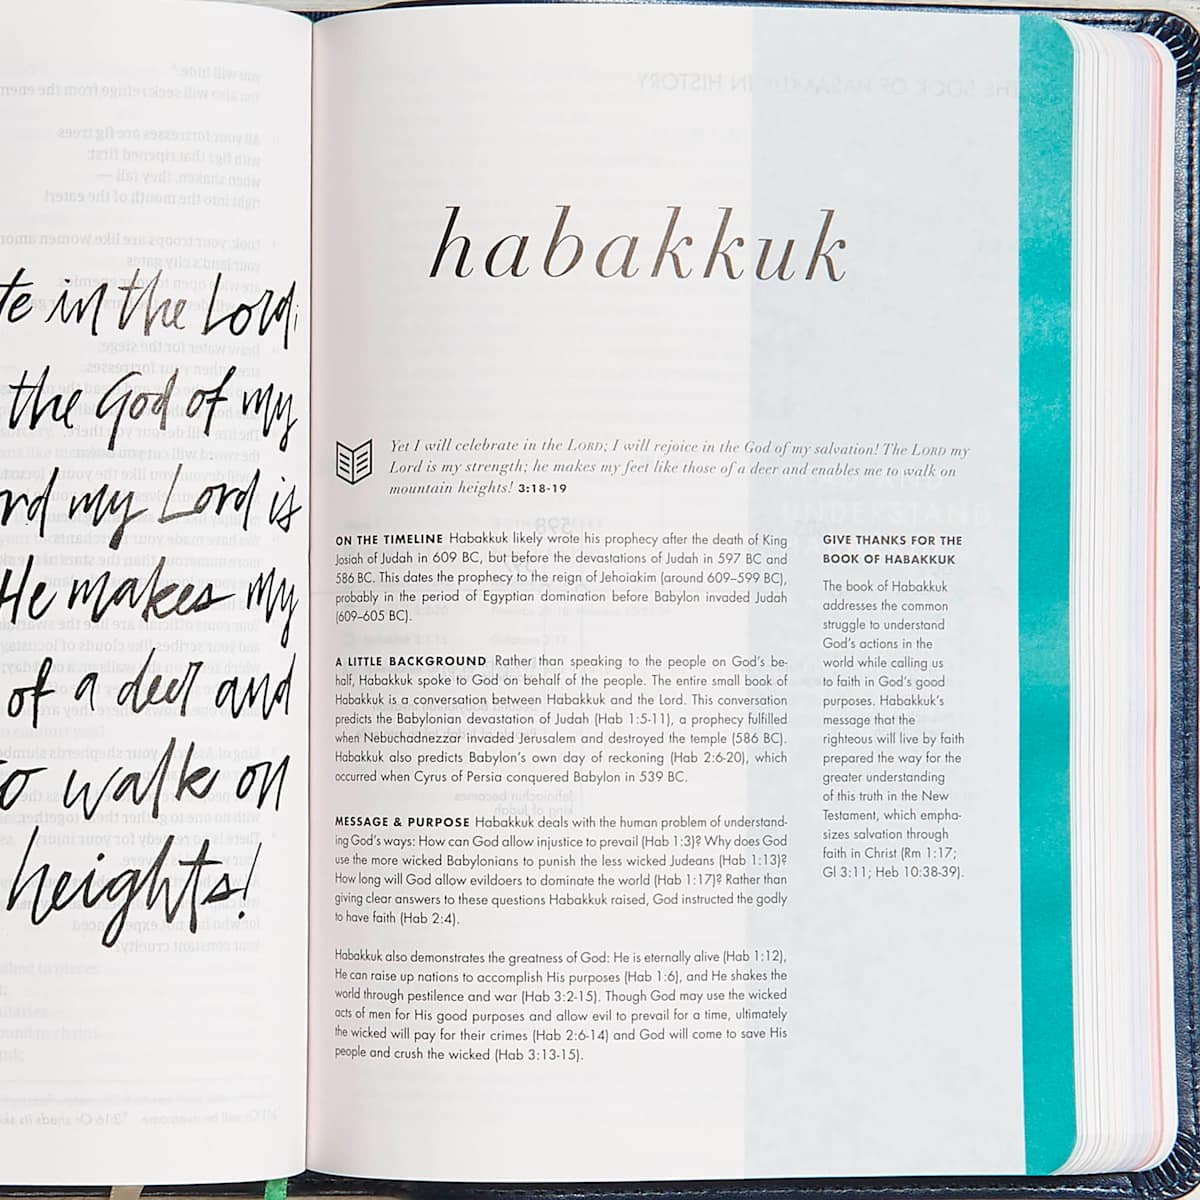 te in the Lord;
the God of my
rd my Lord is
He makes my
of a deer and
to walk on
heights!
THE BOOK OF HABAKKUK IN HISTORY
habakkuk
Yet I will celebrate in the LORD; I will rejoice in the God of my salvation! The LORD my
Lord is my strength; he makes my feet like those of a deer and enables me to walk on
mountain heights! 3:18-19
ON THE TIMELINE Habakkuk likely wrote his prophecy after the death of King
Josiah of Judah in 609 BC, but before the devastations of Judah in 597 BC and
586 BC. This dates the prophecy to the reign of Jehoiakim (around 609–599 BC),
probably in the period of Egyptian domination before Babylon invaded Judah
(609–605 BC).
A LITTLE BACKGROUND Rather than speaking to the people on God's be-
half, Habakkuk spoke to God on behalf of the people. The entire small book of
Habakkuk is a conversation between Habakkuk and the Lord. This conversation
predicts the Babylonian devastation of Judah (Hab 1:5-11), a prophecy fulfilled
when Nebuchadnezzar invaded Jerusalem and destroyed the temple (586 BC).
Habakkuk also predicts Babylon's own day of reckoning (Hab 2:6-20), which
occurred when Cyrus of Persia conquered Babylon in 539 BC.
MESSAGE & PURPOSE Habakkuk deals with the human problem of understand-
ing God's ways: How can God allow injustice to prevail (Hab 1:3)? Why does God
use the more wicked Babylonians to punish the less wicked Judeans (Hab 1:13)?
How long will God allow evildoers to dominate the world (Hab 1:17)? Rather than
giving clear answers to these questions Habakkuk raised, God instructed the godly
to have faith (Hab 2:4).
Habakkuk also demonstrates the greatness of God: He is eternally alive (Hab 1:12),
He can raise up nations to accomplish His purposes (Hab 1:6), and He shakes the
world through pestilence and war (Hab 3:2-15). Though God may use the wicked
acts of men for His good purposes and allow evil to prevail for a time, ultimately
the wicked will pay for their crimes (Hab 2:6-14) and God will come to save His
people and crush the wicked (Hab 3:13-15).
GIVE THANKS FOR THE
BOOK OF HABAKKUK
The book of Habakkuk
addresses the common
struggle to understand
God's actions in the
world while calling us
to faith in God's good
purposes. Habakkuk's
message that the
righteous will live by faith
prepared the way for the
greater understanding
of this truth in the New
Testament, which empha-
sizes salvation through
faith in Christ (Rm 1:17;
Gl 3:11; Heb 10:38-39).